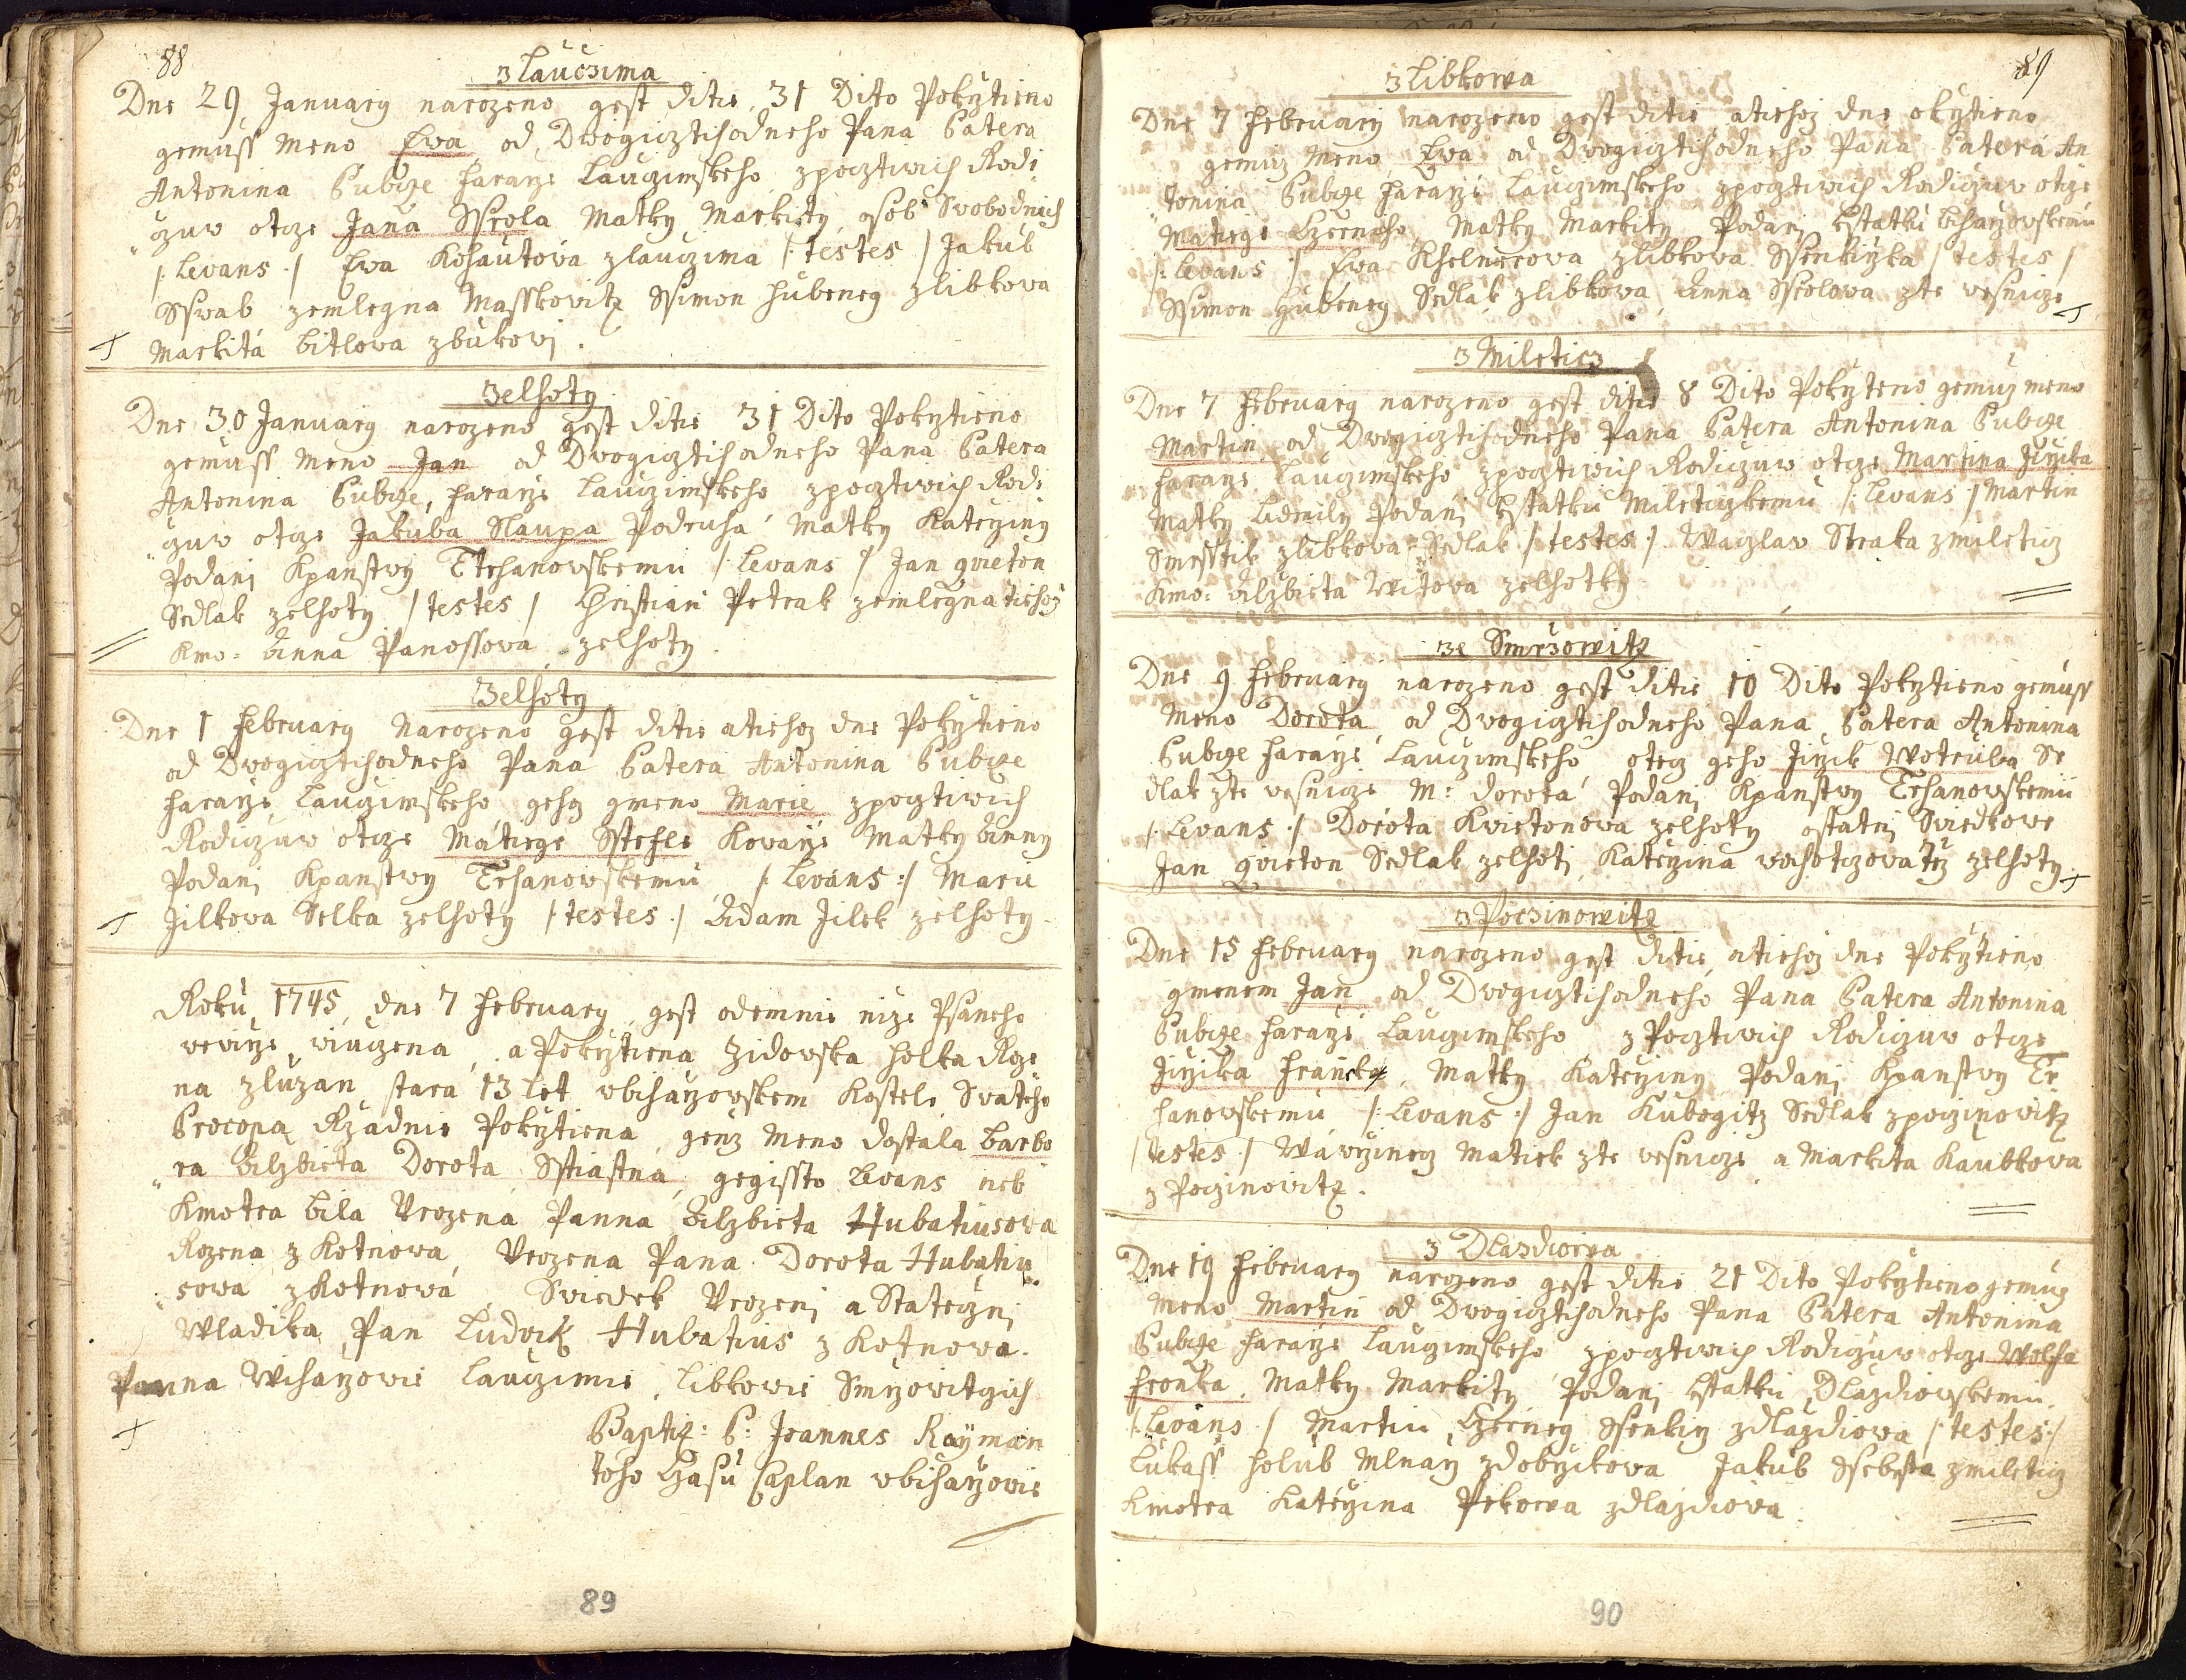 88
z Lauczima
Dne 29 January narozeno gest ditie, 31 Dito Pokrztieno
gemuss meno Ewa od Dwogicztihodneho Pana Patera
Antonina Pubcze Fararze Lauczimskeho zpocztiwich Rodi
czuw otcze Jana Sserola Matky Markity osob Swobodnich
/: Levans :/ Ewa Kohautowa zlauczima /: testes / Jakub
Sswab zemlegna Masskowitz Ssimon Hubeney zlibkowa
Markita Bitlowa zbukowj.
Zelhoty
Dne 30 January narozeno gest ditie 31 Dito Pokrztieno
gemuss meno Jan od Dwogicztihodneho Pana Patera
Antonina Pubcze, Fararze Lauczimskeho zpocztiwich Rodi
czuw otcze Jakuba Slaupa Podruha Matky Katerziny
Podanj Kpanstwy Trhanowskemu /: Levans / Jan Qvieton
Sedlak zelhoty / testes / Christian Petrak zemlegna tiehoz
Kmo: Anna Panossowa zelhoty.
Zelhoty
Dne 1 February Narozeno gest ditie atiehoz dne Pokrztieno
od Dwogicztihodneho Pana Patera Antonina Pubcze
Fararze Lauczimskeho gehoz gmeno Marie zpocztiwich
Rodiczuw otcze Matiege Stefle Kowarze Matky Anny
Podanj Kpanstwy Trhanowskemu /: Levans :/ Marii
Jilkowa Selka zelhoty / testes :/ Adam Jilek zelhoty
Roku 1745, dne 7 February gest odemnie nize Psaneho
wewirze wiuczena, a Pokrztiena Zidowska holka Roze
na zluzan stara 13 let wbiharzowskem Kostele Swateho
Procopa Rzadnie Pokrztiena genz meno dostala Barbo
ra Alzbieta Dorota Sstiastna, gegissto Levans neb
Kmotra Bila Urozena Panna Alzbieta Hubatiusowa
Rozena z Kotnowa, Urozena Pana Dorota Hubatiu
sowa z Kotnowa Swiedek Urozenj a Stateczni
Wladika Pan Ludwik Hubatius z Kotnowa.
Panna Wiharzowie Lauczimie, Libkowie Smrzowitzich
Baptiz: P: Joannes Rayman
toho Czasu Caplan wbiharzowie
89
89
z Libkowa
Dne 7 February narozeno gest ditie atiehoz dne okrztieno
gemuz meno Ewa od Dwogicztihodneho Pana Patera An
tonina Pubcze Fararze Lauczimskeho zpocztiwich Rodiczuw otcze
Matiege Czerneho, Matky Markity Podanj Kstatku biharzowskemu
/: Levans :/ Ewa Khelnerowa zlibkowa Ssenkirzka / testes /
Ssimon Hubeney Sedlak zlibkowa Anna Sserolowa zte wesnicze
z Miletiez
Dne 7 February narozeno gest ditie 8 Dito Pokrzteno gemuz meno
Martin od Dwogicztihodneho Pana Patera Antonina Pubcze
Fararze Lauczimskeho zpocztiwich Rodiczuw otcze Martina Jirzika
Matky Lidmily Podanj Kstatku Mileticzkemu /: Levans :/ Martin
Smesstik zlibkowa Sedlak / testes :/ Waczlaw Straka zmileticz
Kmo: Alzbieta Witowa zelhotky
ze Smrzowitz
Dne 9 February narozeno gest ditie 10 Dito Pokrztieno gemuss
meno Dorota od Dwogicztihodneho Pana Patera Antonina
Pubcze Fararze Lauczimskeho otecz geho Jirzik Wotruba Se
dlak zte wesnicze M: dorota Podanj Kpanstwy Trhanowskemu
/: Levans :/ Dorota Kwietonowa zelhoty ostatnj Swiedkowe
Jan Qvieton Sedlak zelhoti, Katerzina wochotzowa tez zelhoty
z Poczinowitz
Dne 15 February narozeno gest ditie, atiehoz dne Pokrztieno
gmenem Jan od Dwogicztihodneho Pana Patera Antonina
Pubcze Fararze Lauczimskeho z Pocztiwich Rodiczuw otcze
Jirzika Francka, Matky Katerziny Podanj Kpanstwy Tr
hanowskemu /: Levans :/ Jan Kubogitz Sedlak zpoczinowitz
/ testes :/ Wawrzinecz Matiek zte wesnicze a Markita Kaubkowa
z Poczinowitz.
z Dlazdiowa
Dne 19 February narozeno gest ditie 21 Dito Pokrztieno gemuz
meno Martin od Dwogicztihodneho Pana Patera Antonina
Pubcze Fararze Lauczimskeho zpocztiwich Rodiczuw otcze Wolfa
Fronka, Matky Markity Podanj Kstatku Dlazdiowskemu.
/: Levans :/ Martin Czerney Ssenkirz zdlazdiowa / testes :/
Lukass Holub Mlnarz zdobrzikowa Jakub Ssebesta zmileticz
Kmotra Katerzina Pekowa zdlazdiowa.
90